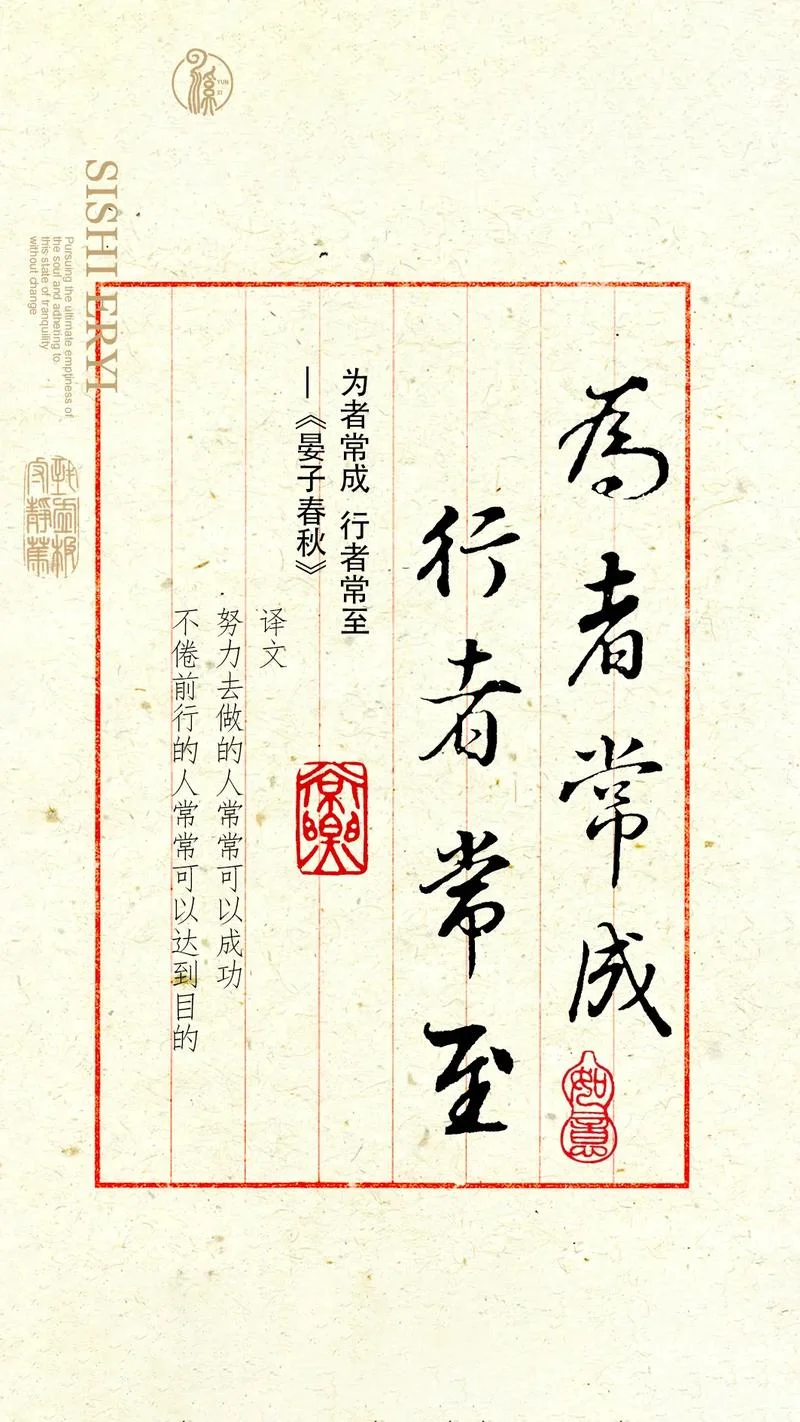 為者常成
行者常至
如意
为者常成 行者常至
—《晏子春秋》
译文
努力去做的人常常可以成功
不倦前行的人常常可以达到目的
YUN
XI
SISHI ERYI
Pursuing the ultimate emptiness of
the soul and adhering to
this state of tranquility
without change
致虚极
守静笃